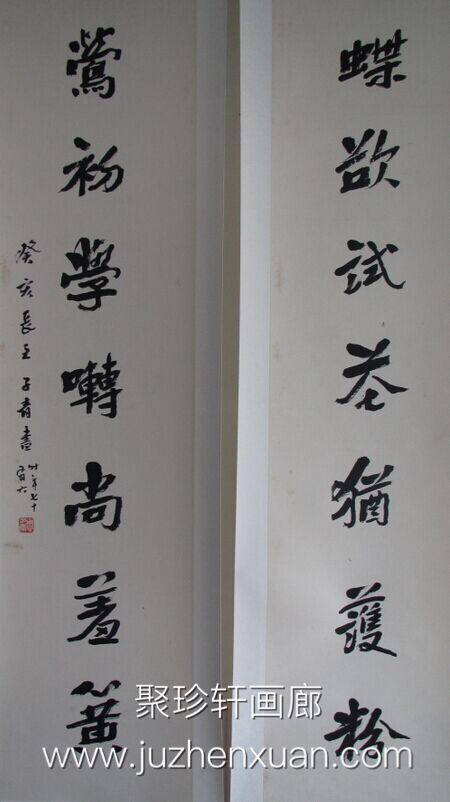 蝶欲試花猶護粉
鶯初學囀尚羞簧
癸亥長至子青書
時年七十
有六
聚珍轩画廊
www.juzhenxuan.com